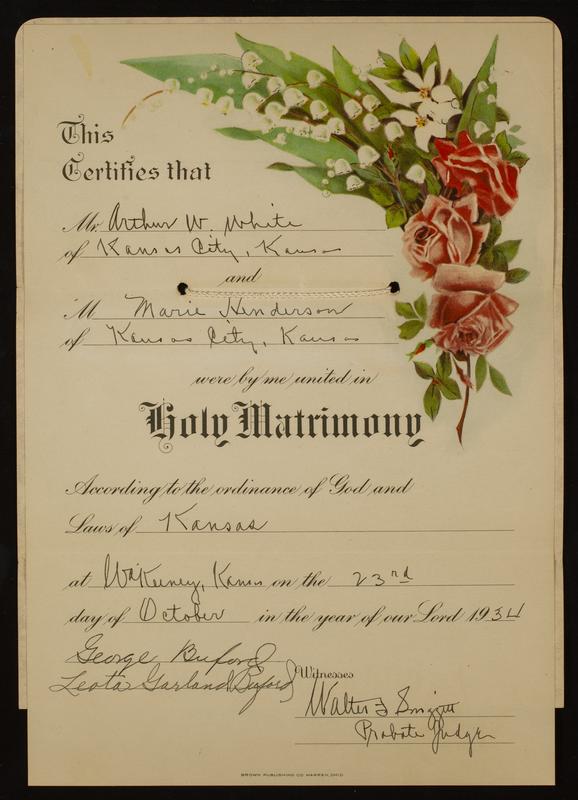 This
Certifies that
Mr. Arthur W. White
of Kansas City, Kansas
and
M Marie Henderson
of Kansas City, Kansas
were by me united in
Holy Matrimony
According to the ordinance of God and
Laws of Kansas
at WaKeeney, Kansas on the 23rd
day of October in the year of our Lord 1934
George Buford
Leota Garland Buford
Witnesses
Walter F
Probate Judge
BROWN PUBLISHING CO WARREN, OHIO